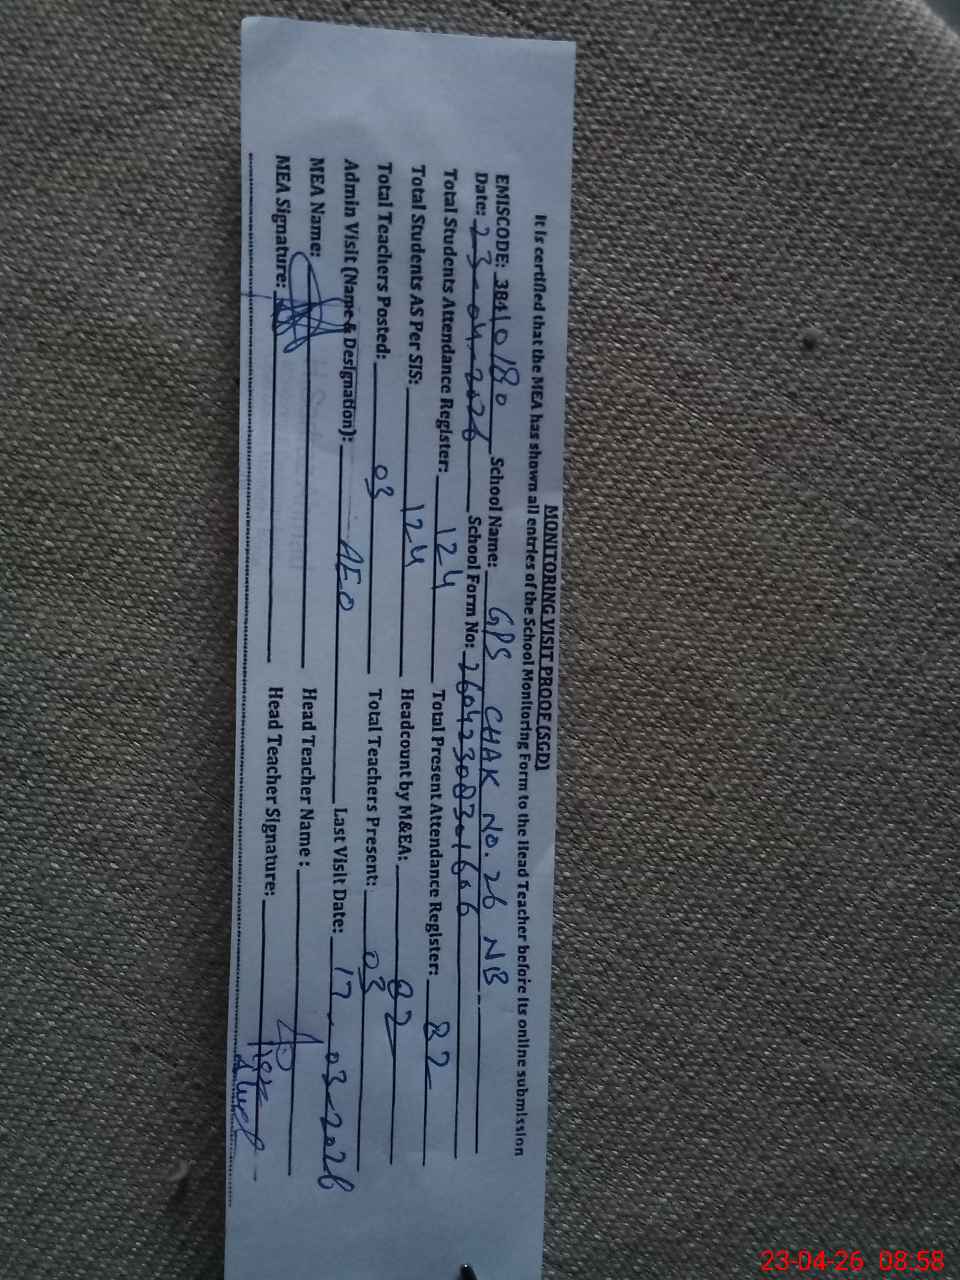 MONITORING VISIT PROOF (SGD)
It is certified that the MEA has shown all entries of the School Monitoring Form to the Head Teacher before its online submission
EMISCODE: 38410180 School Name: GPS CHAK NO. 26 NB
Date: 23-04-2026 School Form No: 26042308301606
Total Students Attendance Register: 124 Total Present Attendance Register: 82
Total Students AS Per SIS: 124 Headcount by M&EA: 82
Total Teachers Posted: 03 Total Teachers Present: 03
Admin Visit (Name & Designation): AEO Last Visit Date: 17-03-2026
MEA Name: Head Teacher Name :
MEA Signature: Head Teacher Signature:
23-04-26 08:58